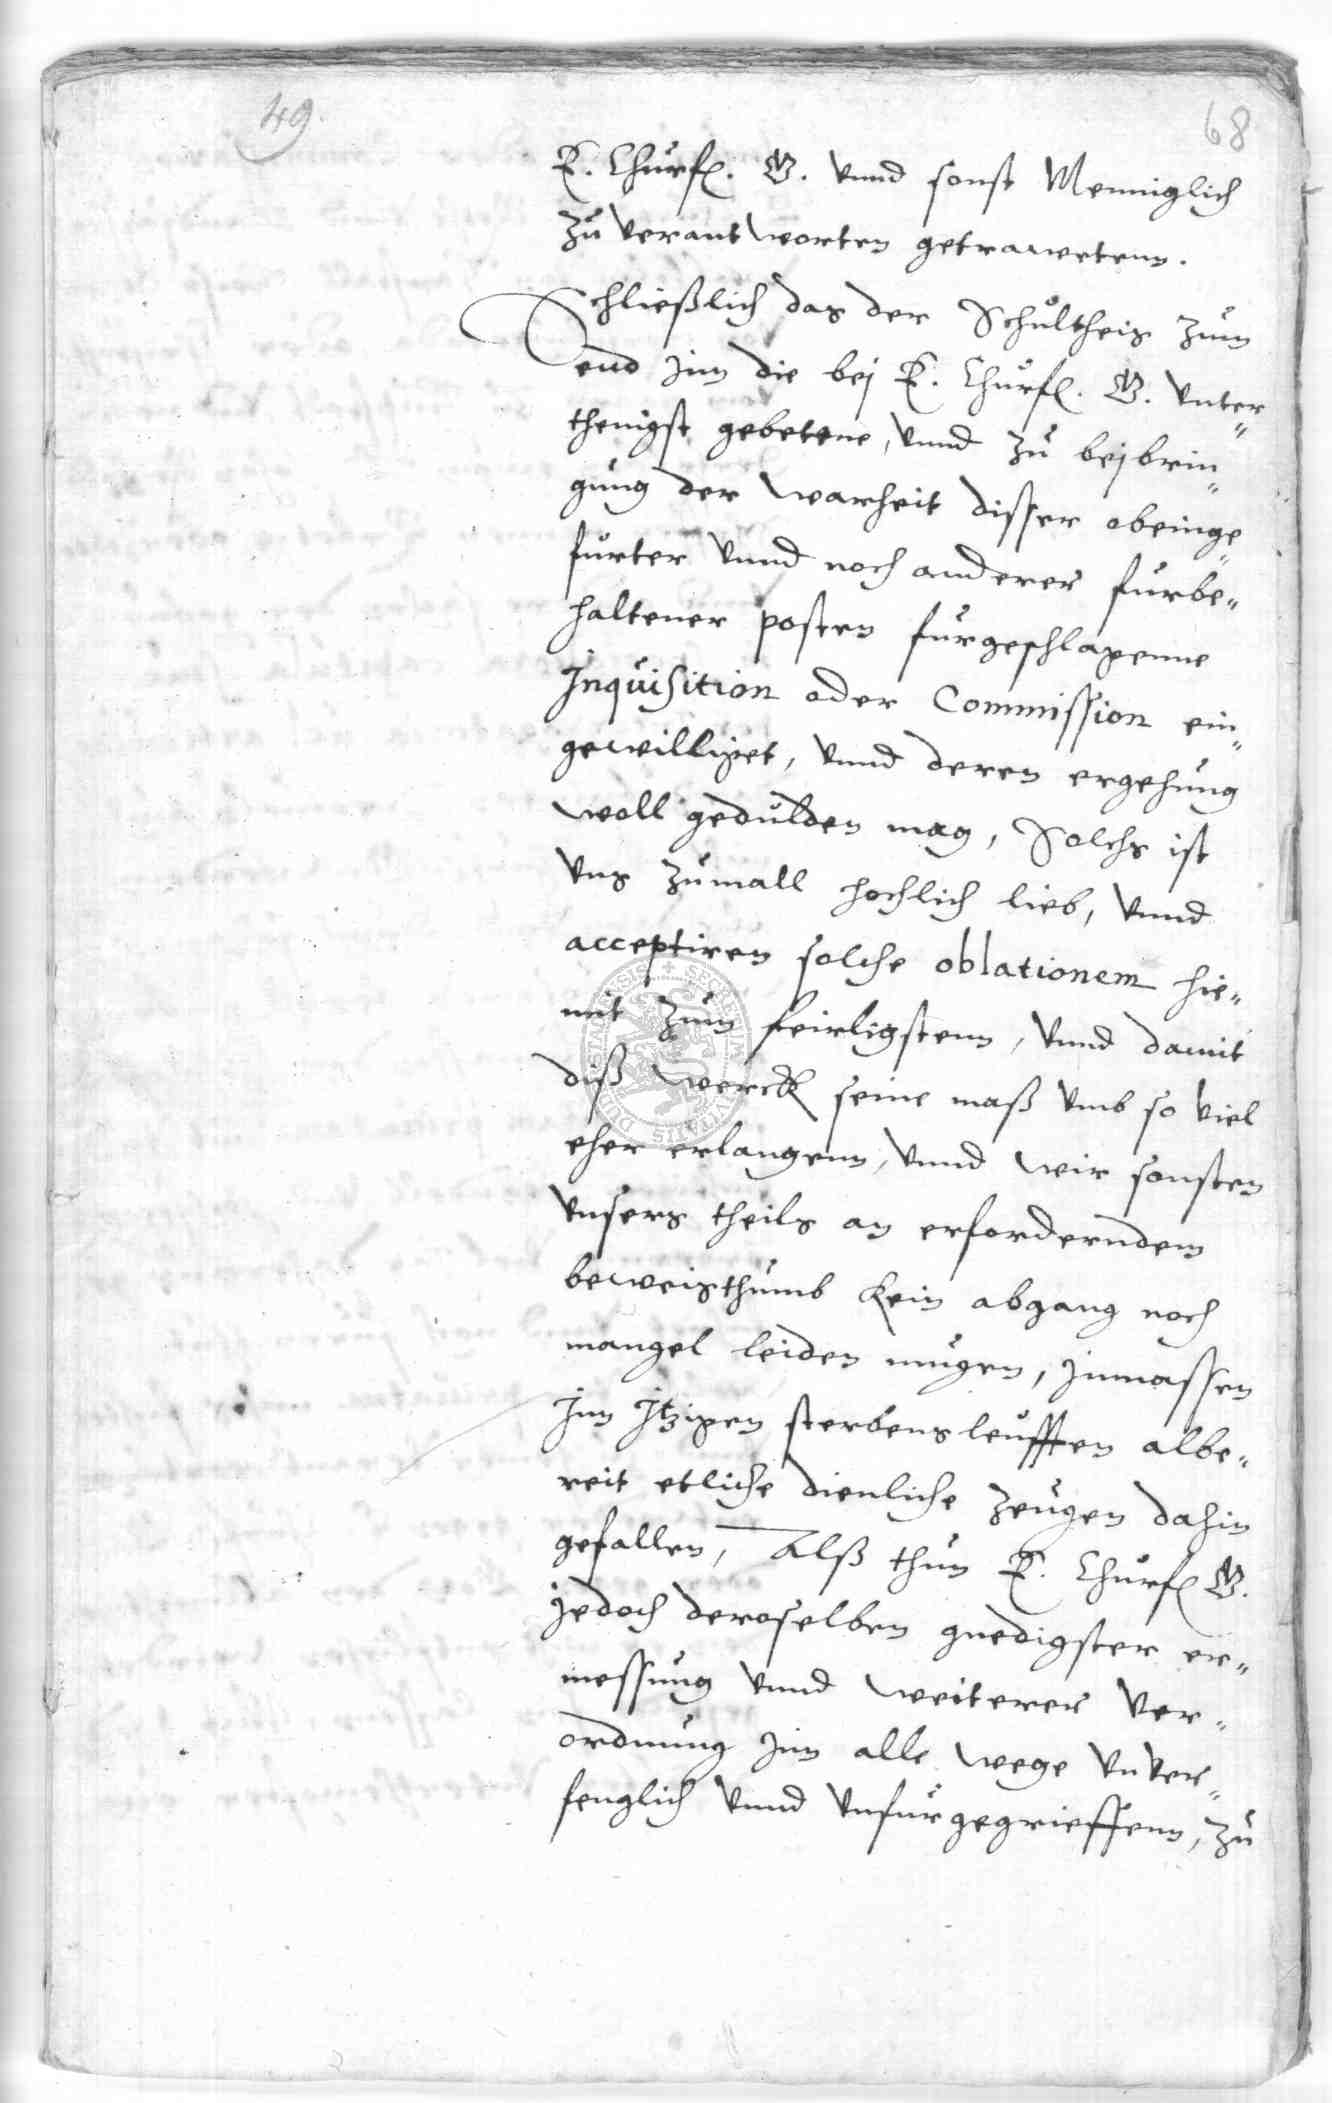 49.
68
E. Churf. G. vnnd sonst Menniglich
zu verantworten getraweten.
Schließlich das der Schultheis zum
end Jnn die bej E. Churf. G. vnter„
thenigst gebetene, vnnd zu bejbrin„
gung der warheit disser obeinge„
furter vnnd noch anderer furbe„
haltener posten furgeschlagenne
Inquisition oder Commission ein„
gewilliget, vnnd deren ergehung
woll gedulden mag, Solchs ist
vns zumall hochlich lieb, vnnd
acceptiren solche oblationem hie„
mit zum feirligstenn, vnnd damit
diß werck seine maß vmb so viel
eher erlangenn, vnnd wir sonsten
vnsers theils an erforderndem
beweisthumb kein abgang noch
mangel leiden mugen, Jnmassen
Jnn Jtzigen sterbens leufften albe„
reit etliche dienliche zeugen dahin
gefallen, Alß thun E. Churf G.
Jedoch deroselben gnedigster er„
messung vnnd weiterer ver„
ordnung Jnn alle wege vnver„
fenglich vnnd vnfurgegrieffenn, zu